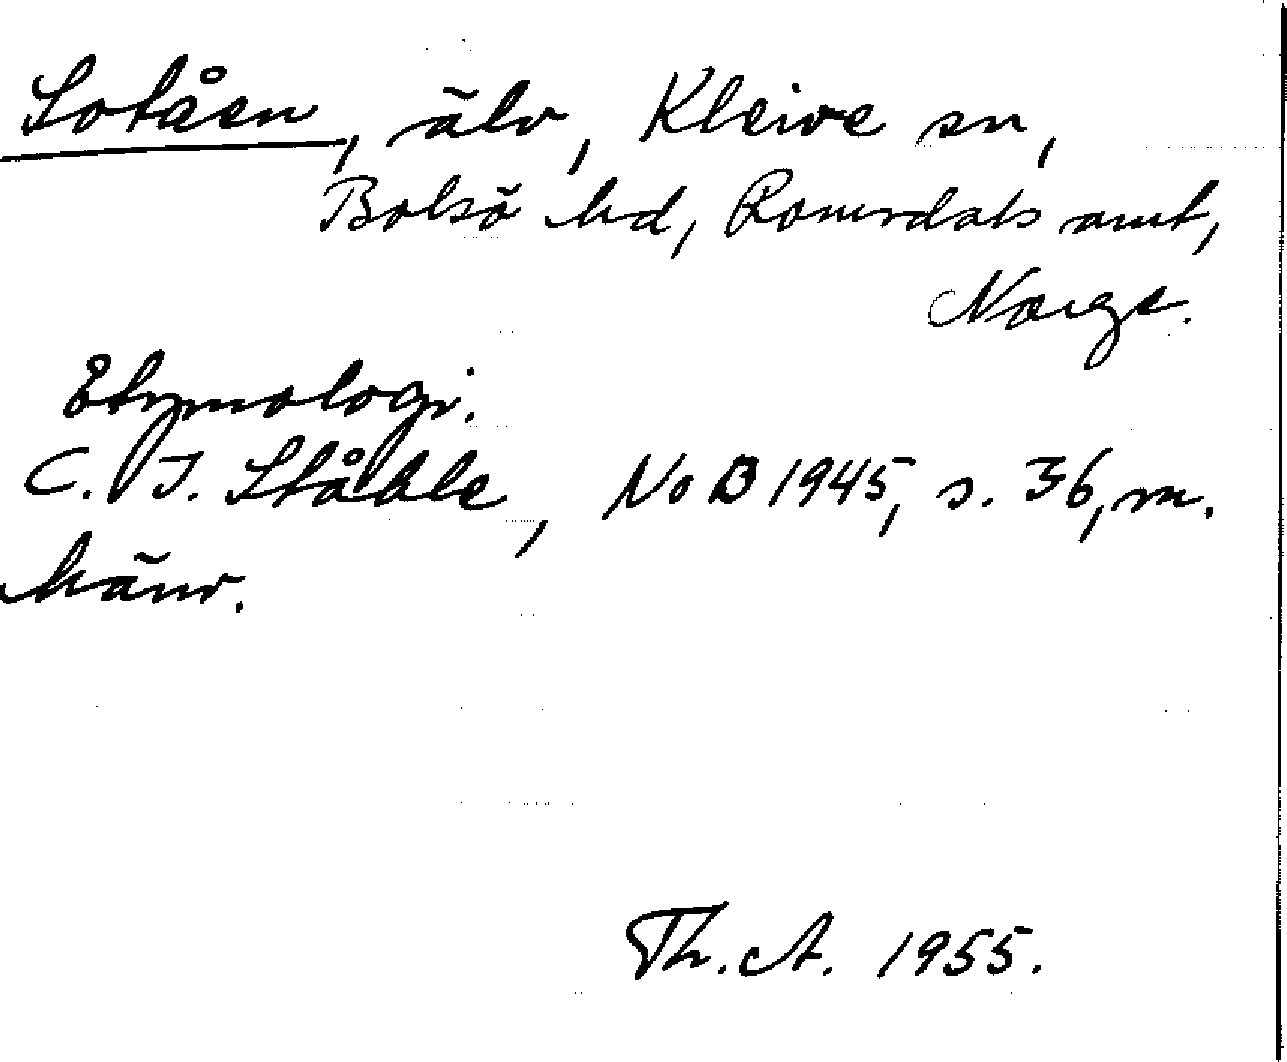 Sotåen, älv, Kleive sn,
Bolsö hd, Romsdals amt,
Norge.
Etymologi.
C. I. Ståhle, NoB 1945, s. 36, m.
hänv.
Th. A. 1955.